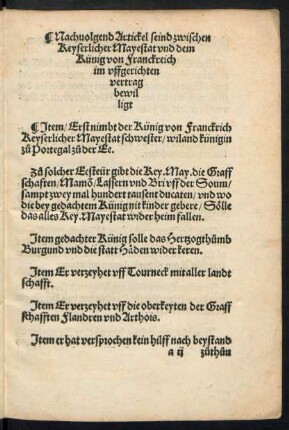 ¶Nachuolgend Artickel seind zwischen
Keyserlicher Mayestat vnd dem
Künig von Franckreich
im vffgerichten
vertrag
bewil
ligt
¶Item/ Erst nimbt der Künig von Franckrich
Keyserlicher Mayestat schwester/ wiland künigin
zů Portegal zů der Ee.
Zů solcher Eesteür gibt die Key. May. die Graff
schafften/ Mamō/ Lassern vnd Bri vff der Soum/
sampt zwey mal hundert tausent ducaten/ vnd wo
die bey gedachtem Künig nit kinder gebere/ Sölle
das alles Key. Mayestat wider heim fallen.
Item gedachter Künig solle das Hertzogthůmb
Burgund vnd die statt Häden wider keren.
Item Er verzeyhet vff Tourneck mit aller landt
schafft.
Item Er verzeyhet vff die oberkeyten der Graff
schafften Flandren vnd Arthois.
Item er hat versprochen kein hülff nach beystand
a ij zůthůn